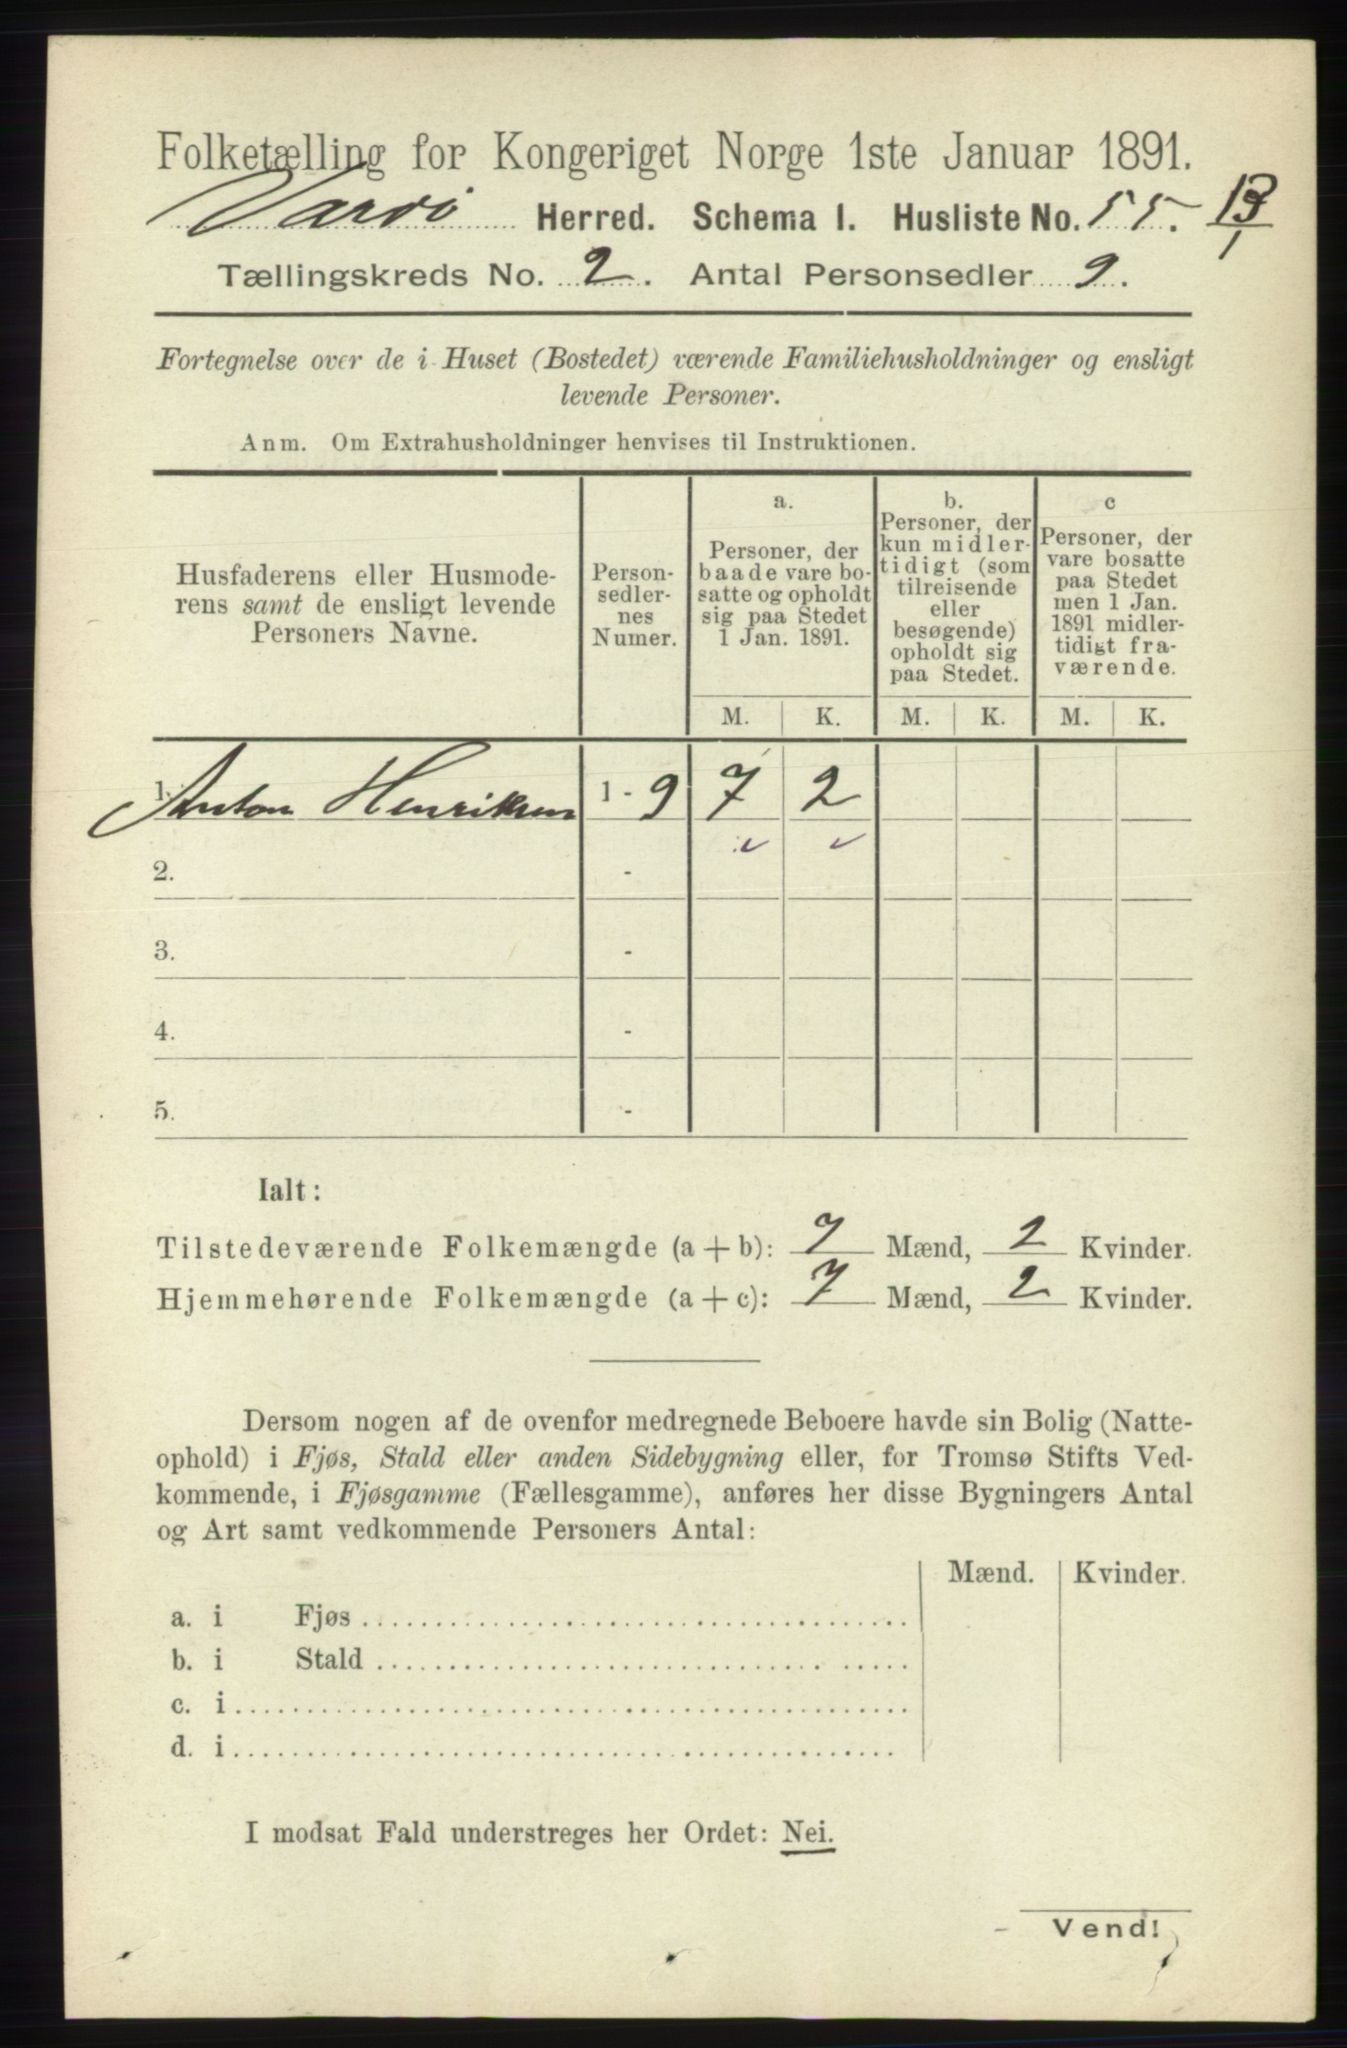 Folketælling for Kongeriget Norge 1ste Januar 1891.
Vardö Herred. Schema I. Husliste No. 55. 13/1
Tællingskreds No. 2. Antal Personsedler 9.
Fortegnelse over de i Huset (Bostedet) værende Familiehusholdninger og ensligt
levende Personer.
Anm. Om Extrahusholdninger henvises til Instruktionen.
Husfaderens eller Husmode-
rens samt de ensligt levende
Personers Navne.
Person-
sedler-
nes
Numer.
a.
Personer, der
baade vare bo-
satte og opholdt
sig paa Stedet
1 Jan. 1891.
b.
Personer, der
kun midler-
tidigt (som
tilreisende
eller
besøgende)
opholdt sig
paa Stedet.
c
Personer, der
vare bosatte
paa Stedet
men 1 Jan.
1891 midler-
tidigt fra-
værende.
M. K. M. K. M. K.
1. Anton Henriksen 1 - 9 7 2
2. -
3. -
4. -
5. -
Ialt:
Tilstedeværende Folkemængde (a + b): 7 Mænd, 2 Kvinder.
Hjemmehørende Folkemængde (a + c): 7 Mænd, 2 Kvinder.
Dersom nogen af de ovenfor medregnede Beboere havde sin Bolig (Natte-
ophold) i Fjøs, Stald eller anden Sidebygning eller, for Tromsø Stifts Ved-
kommende, i Fjøsgamme (Fællesgamme), anføres her disse Bygningers Antal
og Art samt vedkommende Personers Antal:
Mænd. Kvinder.
a. i Fjøs
b. i Stald
c. i
d. i
I modsat Fald understreges her Ordet: Nei.
Vend!